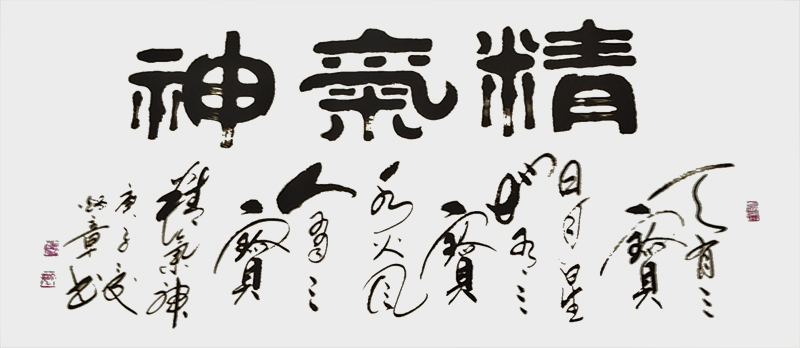 精氣神
天有三
寶
日月星
地有三
寶
水火风
人有三
寶
精氣神
庚子
章书